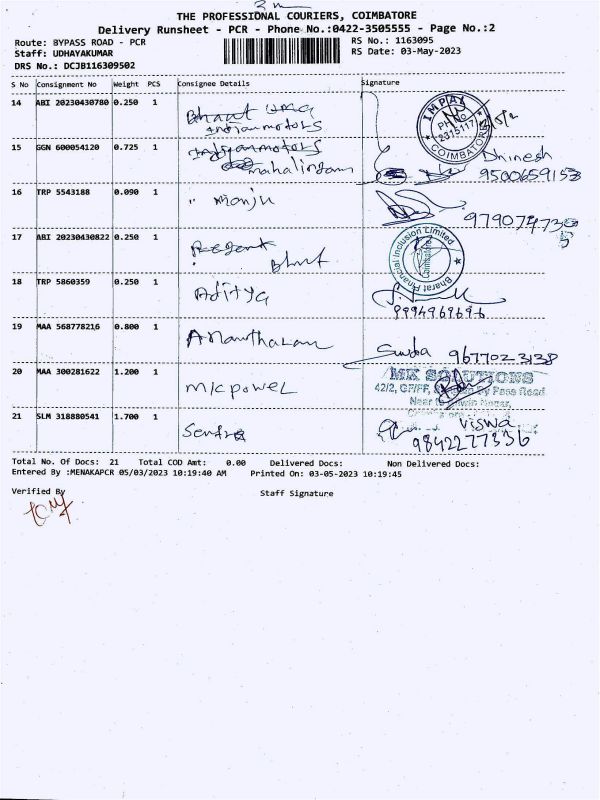 THE PROFESSIONAL COURIERS, COIMBATORE
Delivery Runsheet - PCR - Phone No.:0422-3505555 - Page No.:2
Route: BYPASS ROAD - PCR
RS No.: 1163095
Staff: UDHAYAKUMAR
RS Date: 03-May-2023
DRS No.: DCJB116309502
S No Consignment No Weight PCS Consignee Details Signature
14 ABI 20230430780 0.250 1 Bharat
indian motors
IMPAL
PH.No
2315117
COIMBATORE
15 GGN 600054120 0.725 1 indian motors
mahalingam
Dhinesh
9500659153
16 TRP 5543188 0.090 1 " Manju
17 ABI 20230430822 0.250 1
Bharat Financial Inclusion Limited
Coimbatore
18 TRP 5860359 0.250 1 Aditya
9994969696
19 MAA 568778216 0.800 1
9677023138
20 MAA 300281622 1.200 1 M/c power
MK SOLUTIONS
42/2, GF/FF, By Pass Road
Near
21 SLM 318880541 1.700 1
Viswa
9842277336
Total No. Of Docs: 21 Total COD Amt: 0.00 Delivered Docs: Non Delivered Docs:
Entered By :MENAKAPCR 05/03/2023 10:19:40 AM Printed On: 03-05-2023 10:19:45
Verified By
Staff Signature